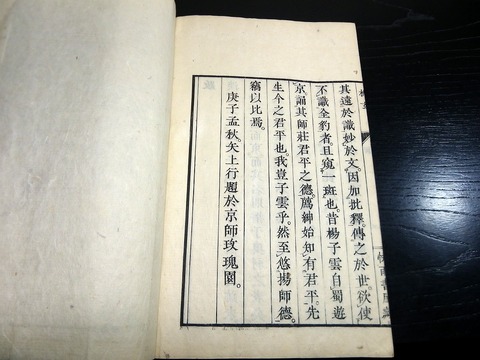 其遠於識妙於文因加批釋傳之於世欲使
不識全豹者且窺一斑也昔楊子雲自蜀遊
京誦其師莊君平之德薦紳始知有君平先
生今之君平也我豈子雲乎然至悠揚師德
竊以比焉
庚子孟秋矢上行題於京師玫瑰園